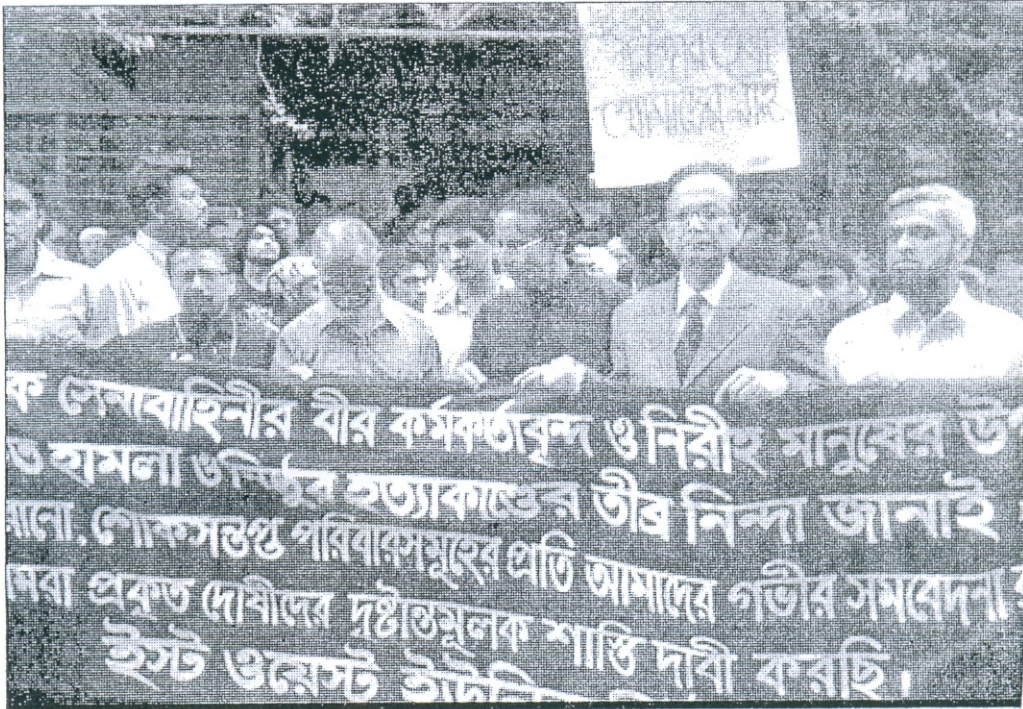 ক সেনাবাহিনীর বীর কর্মকর্তাবৃন্দ ও নিরীহ মানুষের উ
ও হামলা ও নিষ্ঠুর হত্যাকাণ্ডের তীব্র নিন্দা জানাই
ানো, শোকসন্তপ্ত পরিবারসমূহের প্রতি আমাদের গভীর সমবেদনা
মরা প্রকৃত দোষীদের দৃষ্টান্তমূলক শাস্তি দাবী করছি।
ইস্ট ওয়েস্ট